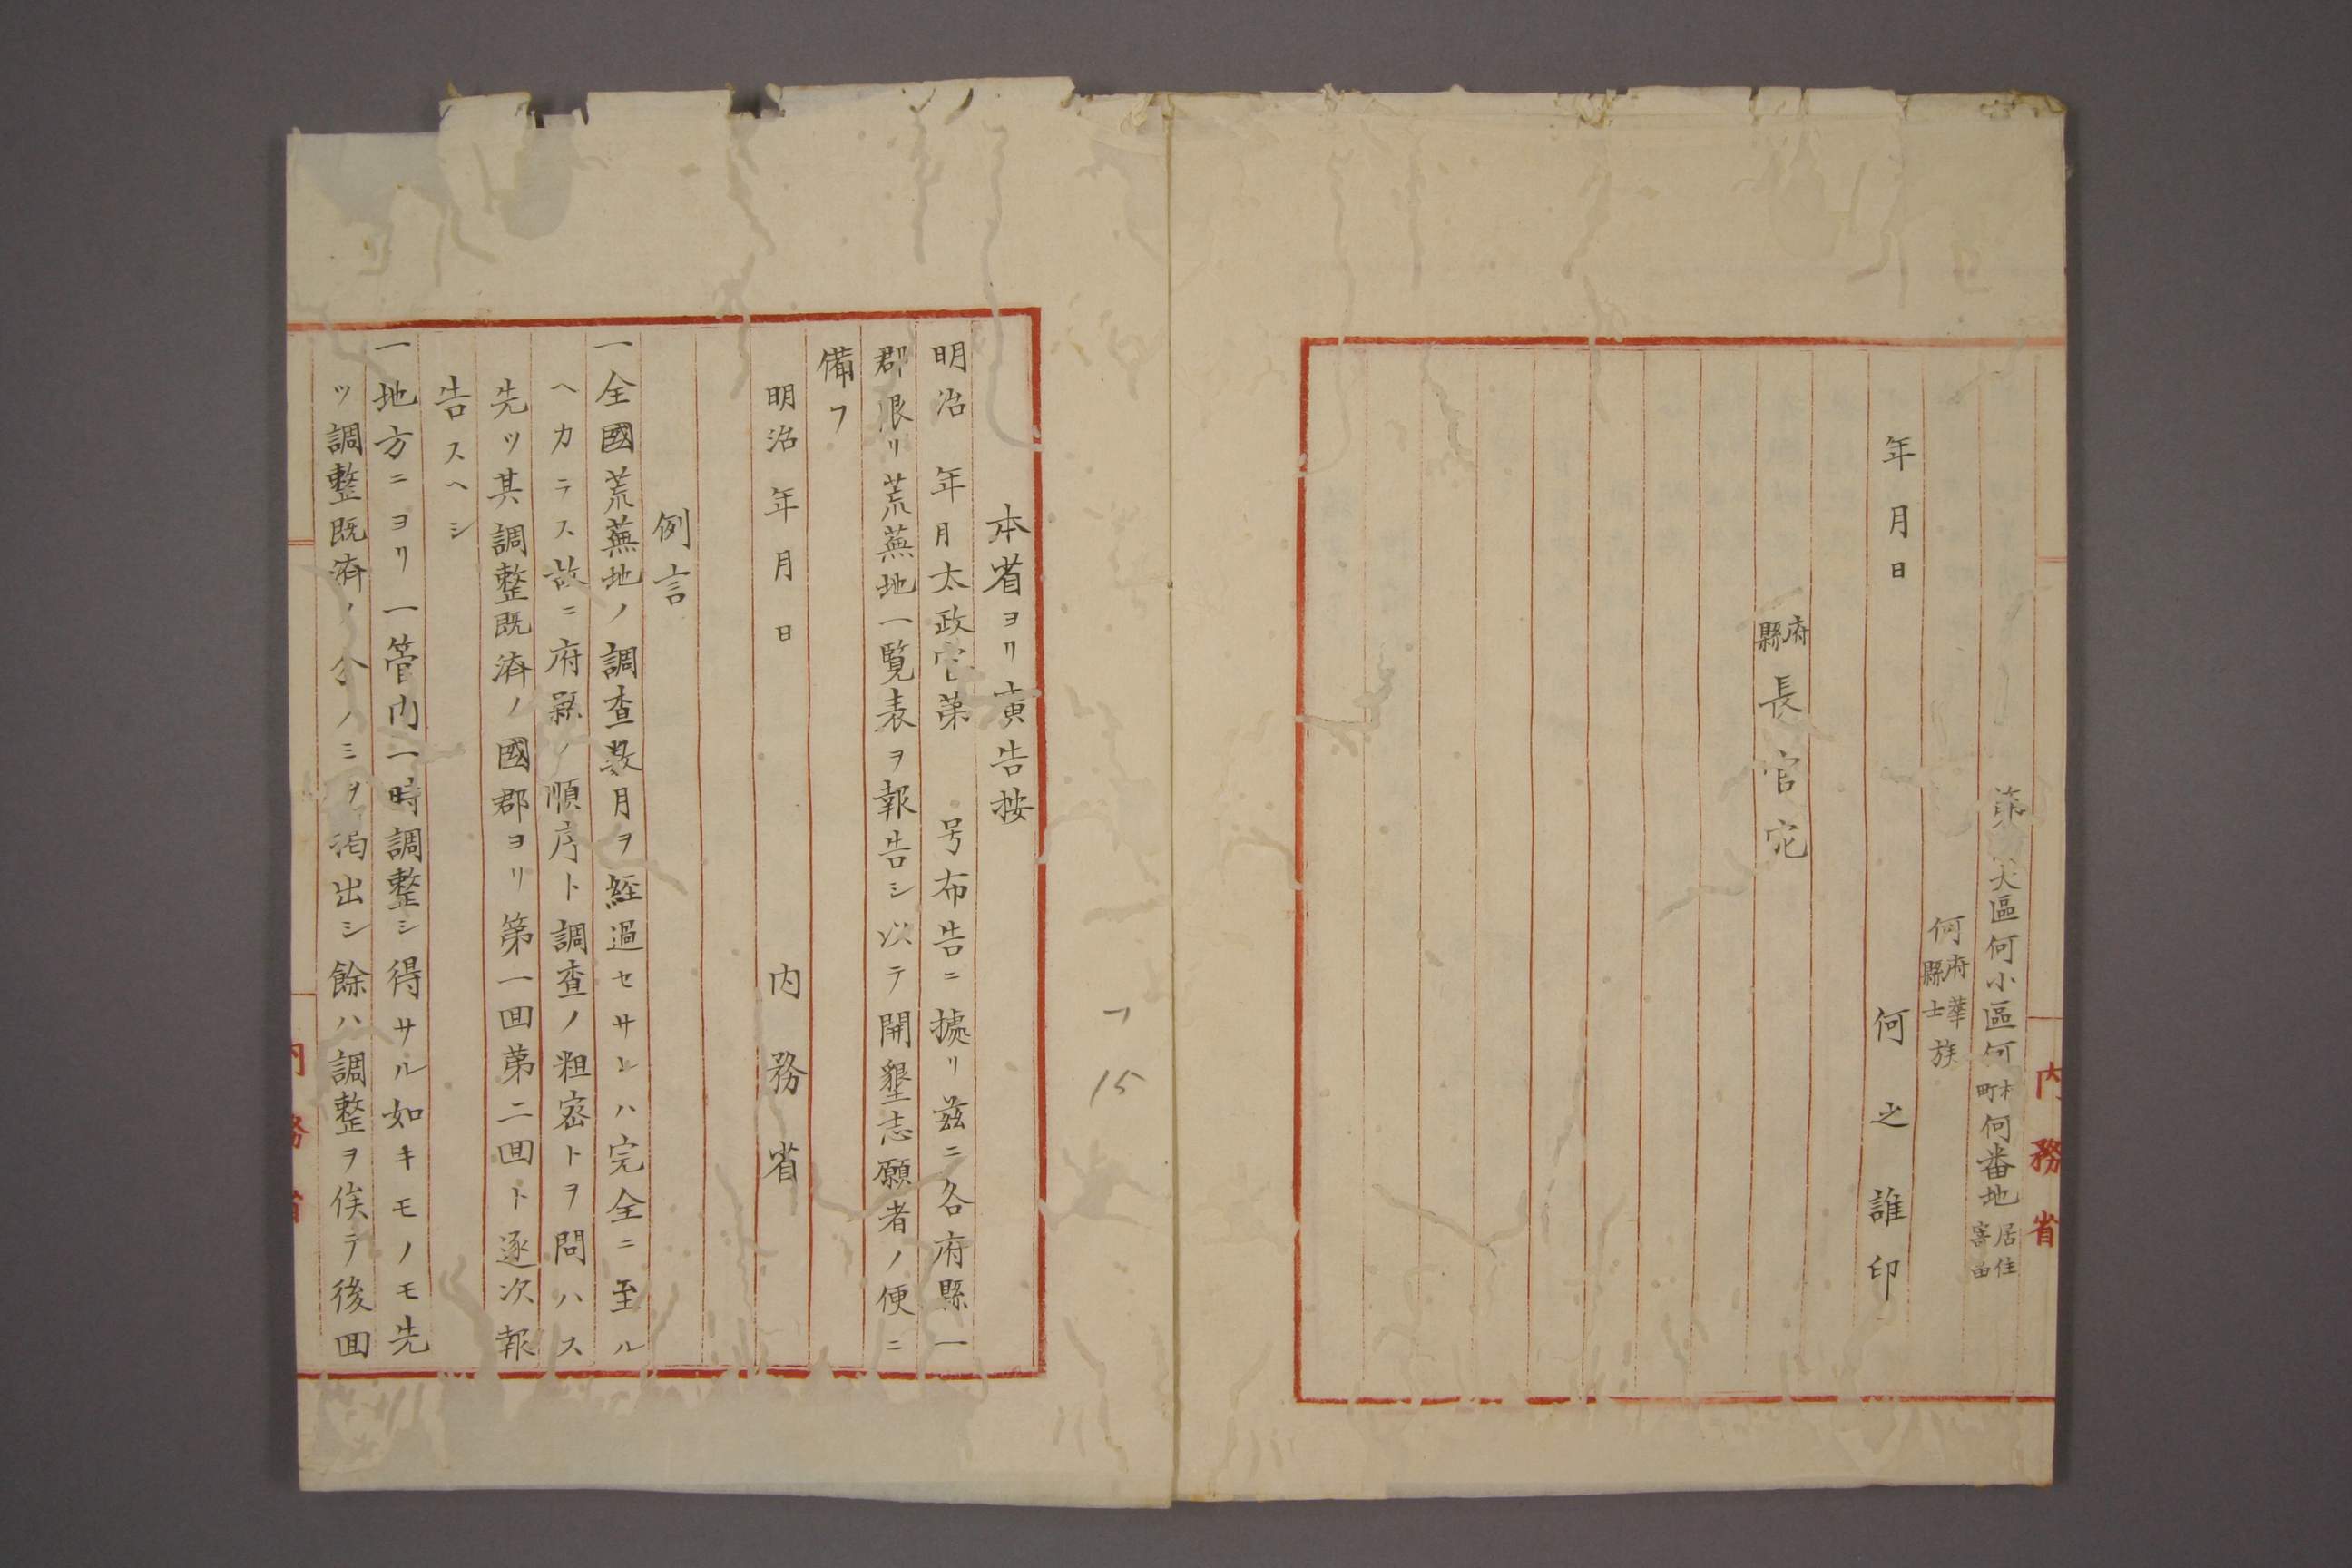 内務省
第　大區何小區何村町何番地居住寄留
何府縣華士族
年月日　何之誰印
府縣長官宛
7 15
本省ヨリ廣告按
明治　年月太政官第　号布告ニ據リ茲ニ各府縣一
郡限リ荒蕪地一覧表ヲ報告シ以テ開墾志願者ノ便ニ
備フ
明治年月日　内務省
例言
一全國荒蕪地ノ調査数月ヲ経過セサレハ完全ニ至ル
ヘカラス故ニ府縣ノ順序ト調査ノ粗密トヲ問ハス
先ツ其調整既済ノ國郡ヨリ第一回第二回ト逐次報
告スヘシ
一地方ニヨリ一管内一時調整シ得サル如キモノモ先
ツ調整既済ノ分ノミヲ出シ餘ハ調整ヲ俟テ後回
内務省